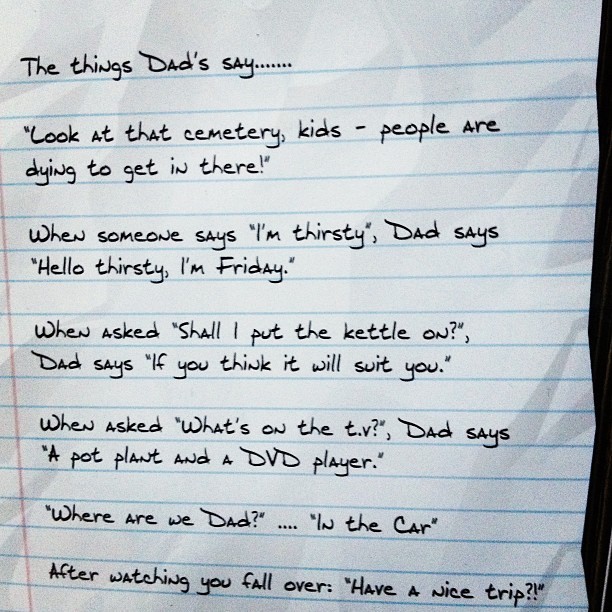 The things Dad's say.......
"Look at that cemetery, kids - people are
dying to get in there!"
When someone says "I'm thirsty", Dad says
"Hello thirsty, I'm Friday."
When asked "Shall I put the kettle on?",
Dad says "If you think it will suit you."
When asked "What's on the t.v?", Dad says
"A pot plant and a DVD player."
"Where are we Dad?" .... "In the Car"
After watching you fall over: "Have a nice trip?!"